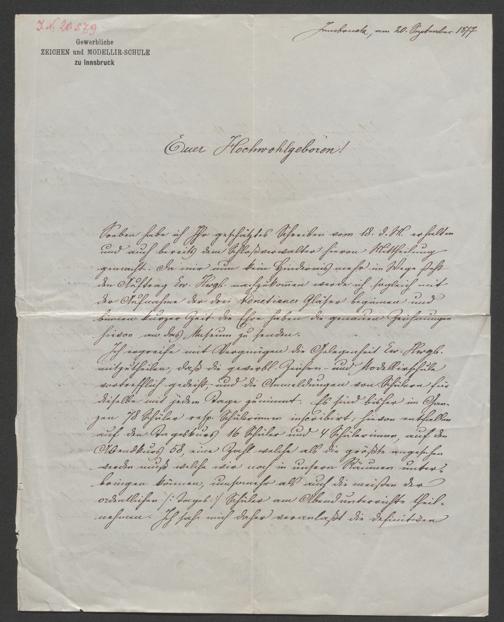 I.N. 20.579
Gewerbliche
ZEICHEN und MODELLIR-SCHULE
zu Innsbruck
Innsbruck, am 20. September 1877
Euer Hochwohlgeboren!
Soeben habe ich Ihr geschätztes Schreiben vom 18. d. M. erhalten
und auch bereits dem Schloßverwalter hievon Mittheilung
gemacht. Da mir nun kein Hinderniß mehr im Wege steht
den Auftrag Ew. Hwgb. nachzukommen werde ich sogleich mit
der Aufnahme der drei Gläser beginnen und
kurzer Zeit die Ehre haben die genauen Zeichnungen
hievon an das Museum zu senden.
Ich ergreife mit Vergnügen die Gelegenheit Ew. Hwgb.
mitzutheilen, daß die gewerbl. Zeichen- und Modellirschule
vortrefflich gedeiht, und die Anmeldungen von Schülern für
dieselbe mit jedem Tage zunimmt. Es sind bisher im Gan-
zen 78 Schüler resp. Schülerinen inscribirt; hievon entfallen
auf den Tagskurs 16 Schüler und 4 Schülerinen, auf den
Abendkurs 58, eine Zahl welche als die größte angesehen
werden muß welche wir noch in unsern Räumen unter-
bringen können, umsomehr als auch die meisten der
ordentlichen /: Tags :/ Schüler am Abendunterrichte theil-
nehmen. Ich sehe mich daher veranlaßt die definitiven